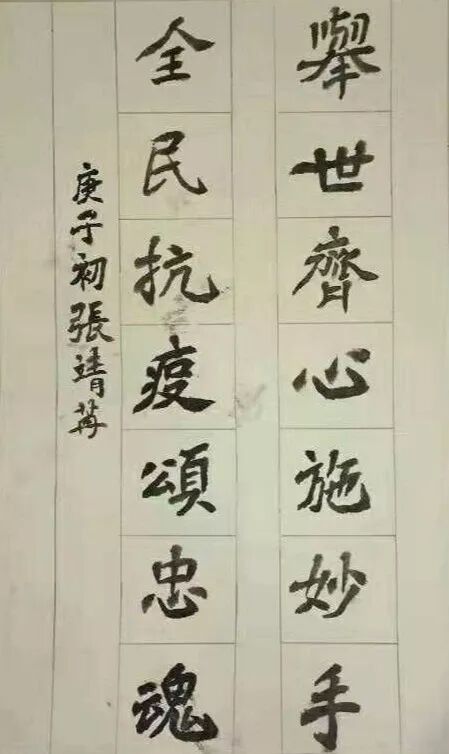 舉世齊心施妙手
全民抗疫頌忠魂
庚子初張靖苒